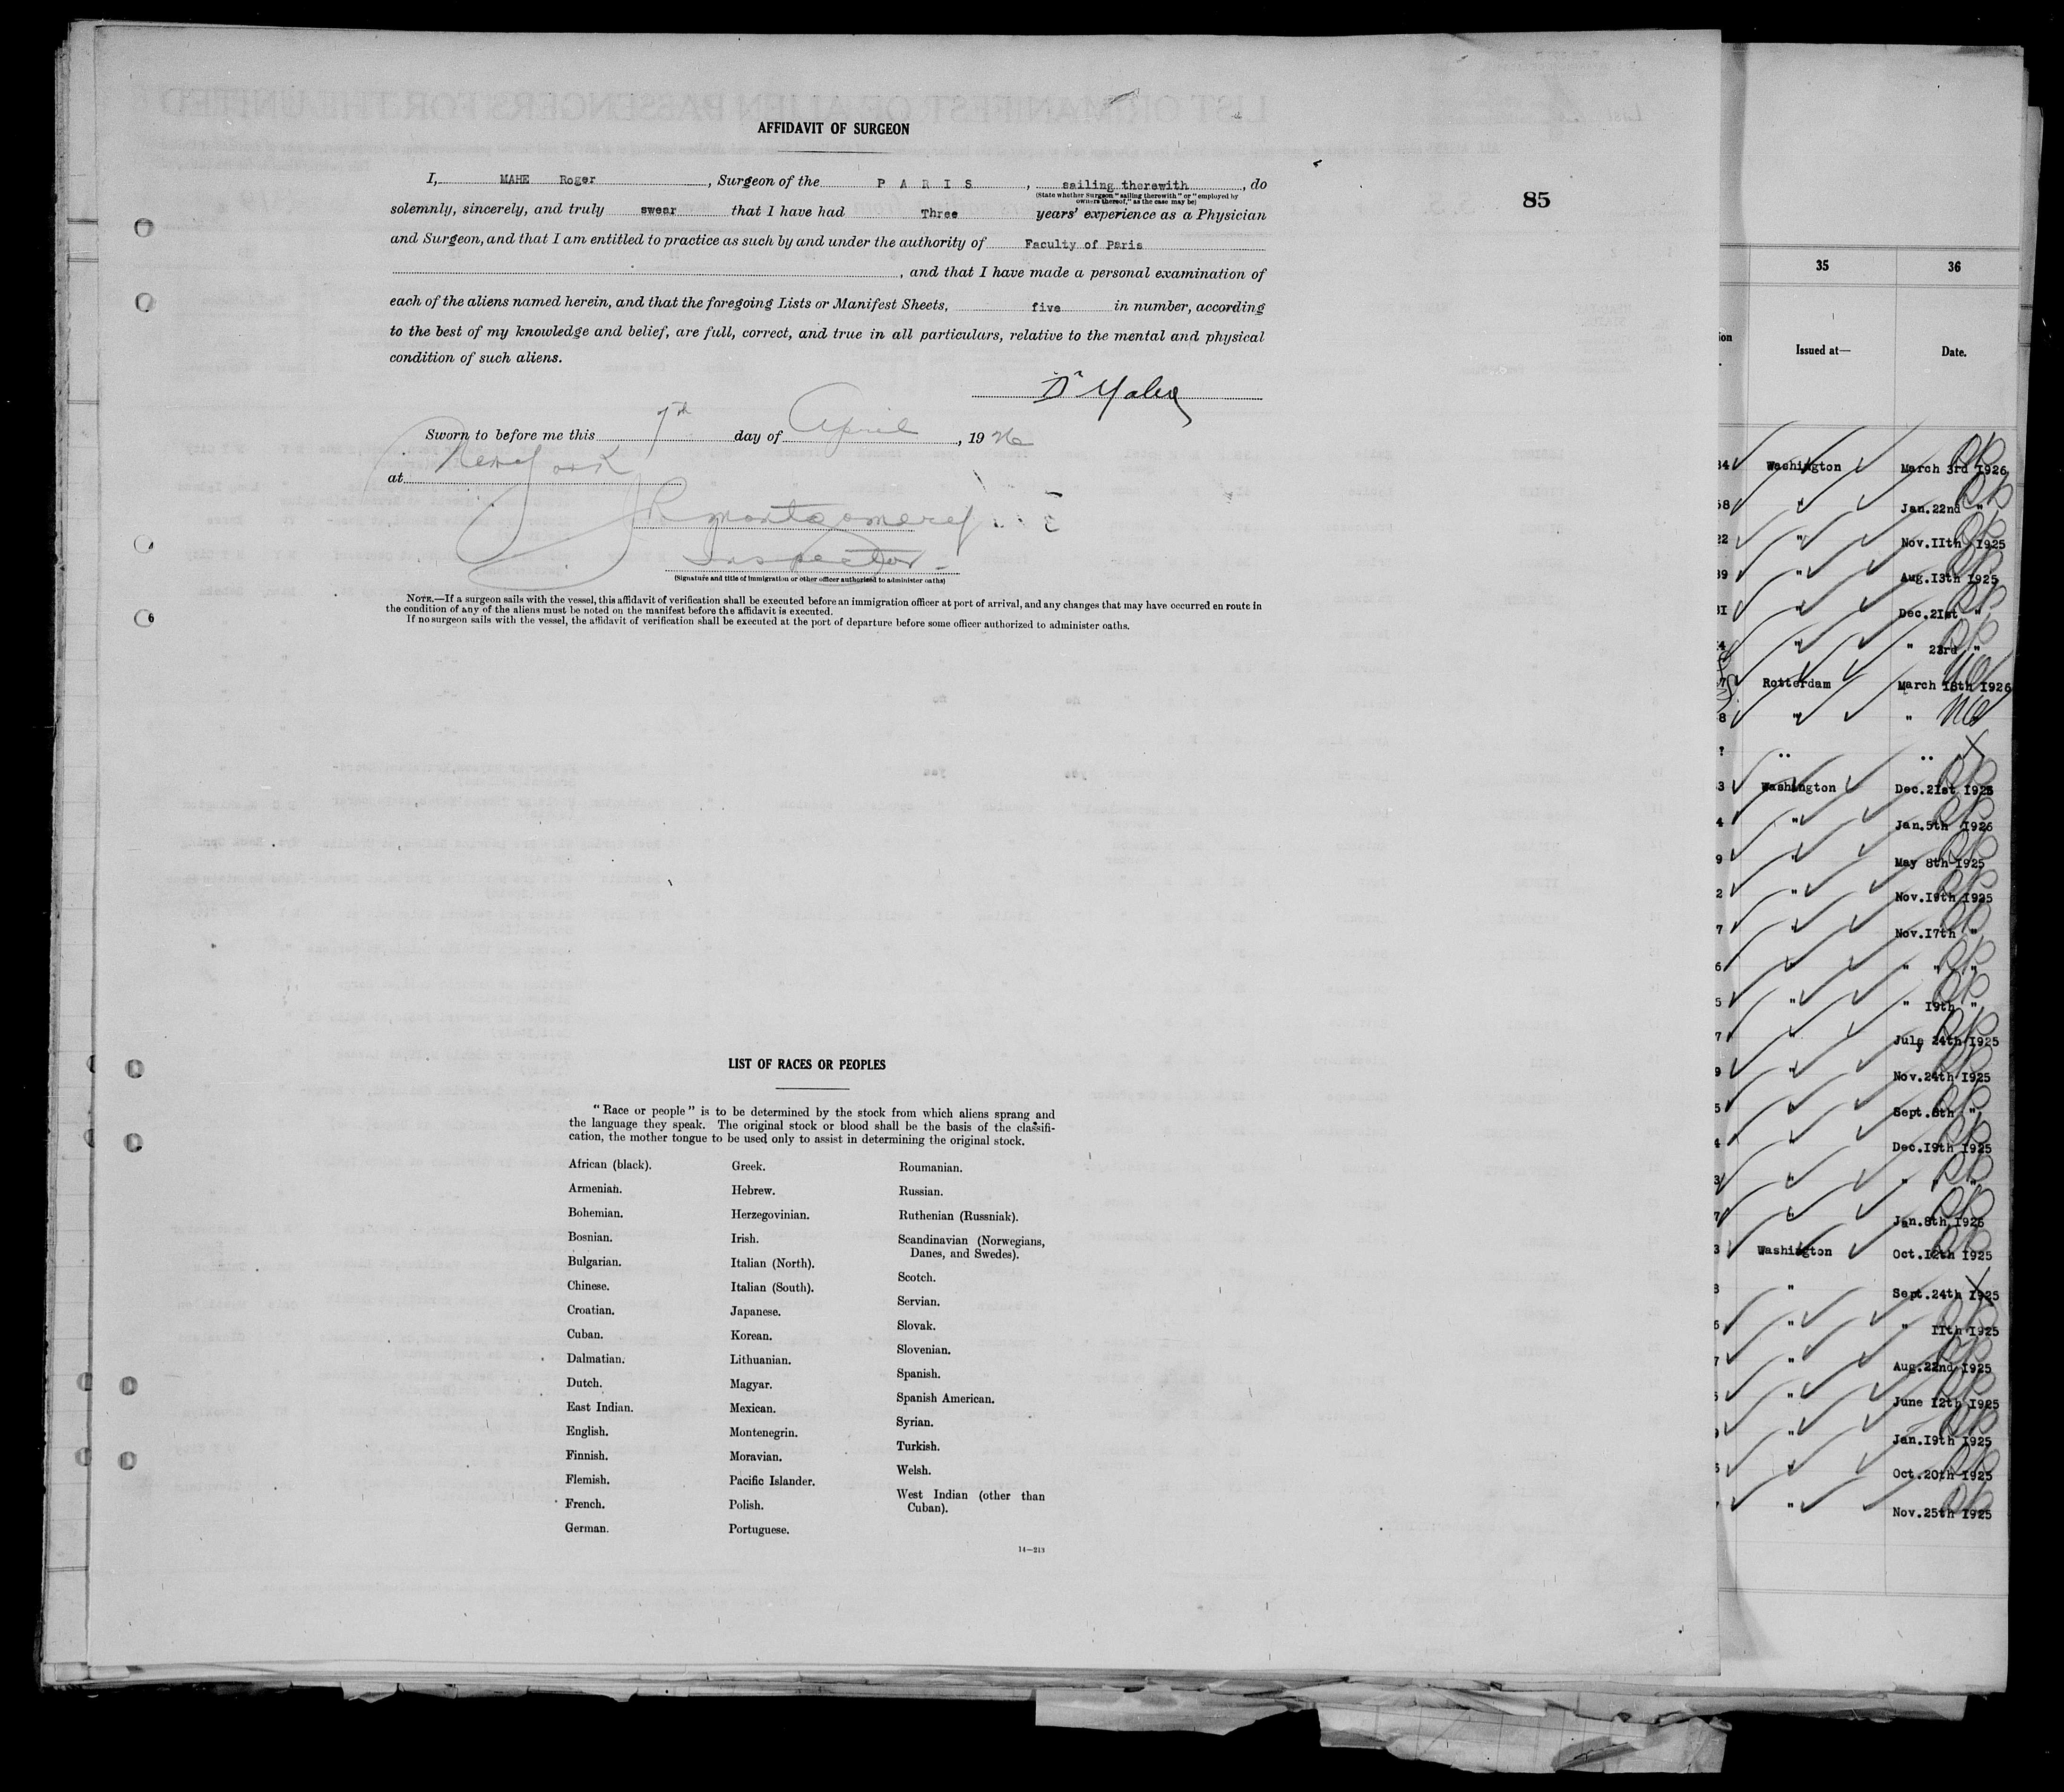 AFFIDAVIT OF SURGEON
I, MAHE Roger, Surgeon of the P A R I S, sailing therewith, do
(State whether Surgeon "sailing therewith" or "employed by owners thereof," as the case may be)
85
solemnly, sincerely, and truly swear that I have had Three years' experience as a Physician
and Surgeon, and that I am entitled to practice as such by and under the authority of Faculty of Paris
, and that I have made a personal examination of
each of the aliens named herein, and that the foregoing Lists or Manifest Sheets, five in number, according
to the best of my knowledge and belief, are full, correct, and true in all particulars, relative to the mental and physical
condition of such aliens.
Sworn to before me this 7th day of April, 1926
at New York
Montgomery
Inspector
(Signature and title of immigration or other officer authorized to administer oaths)
NOTE.—If a surgeon sails with the vessel, this affidavit of verification shall be executed before an immigration officer at port of arrival, and any changes that may have occurred en route in
the condition of any of the aliens must be noted on the manifest before the affidavit is executed.
If no surgeon sails with the vessel, the affidavit of verification shall be executed at the port of departure before some officer authorized to administer oaths.
LIST OF RACES OR PEOPLES
"Race or people" is to be determined by the stock from which aliens sprang and
the language they speak. The original stock or blood shall be the basis of the classifi-
cation, the mother tongue to be used only to assist in determining the original stock.
African (black).
Armenian.
Bohemian.
Bosnian.
Bulgarian.
Chinese.
Croatian.
Cuban.
Dalmatian.
Dutch.
East Indian.
English.
Finnish.
Flemish.
French.
German.
Greek.
Hebrew.
Herzegovinian.
Irish.
Italian (North).
Italian (South).
Japanese.
Korean.
Lithuanian.
Magyar.
Mexican.
Montenegrin.
Moravian.
Pacific Islander.
Polish.
Portuguese.
Roumanian.
Russian.
Ruthenian (Russniak).
Scandinavian (Norwegians,
Danes, and Swedes).
Scotch.
Servian.
Slovak.
Slovenian.
Spanish.
Spanish American.
Syrian.
Turkish.
Welsh.
West Indian (other than
Cuban).
14—213
35 36
Issued at— Date.
Washington March 3rd 1926
" Jan.22nd "
" Nov.IIth I925
" Aug.I3th I925
" Dec.2Ist "
" " 23rd "
Rotterdam March 18th 1926
" "
" "
Washington Dec.2Ist I925
" Jan.5th I926
" May 8th I925
" Nov.I9th I925
" Nov.I7th "
" " " "
" " I9th "
" July 24th I925
" Nov.24th I925
" Sept.8th "
" Dec.I9th I925
" " " "
" Jan.8th I926
Washington Oct.I2th I925
" Sept.24th I925
" " IIth I925
" Aug.22nd I925
" June I2th I925
" Jan.I9th I925
" Oct.20th I925
" Nov.25th I925